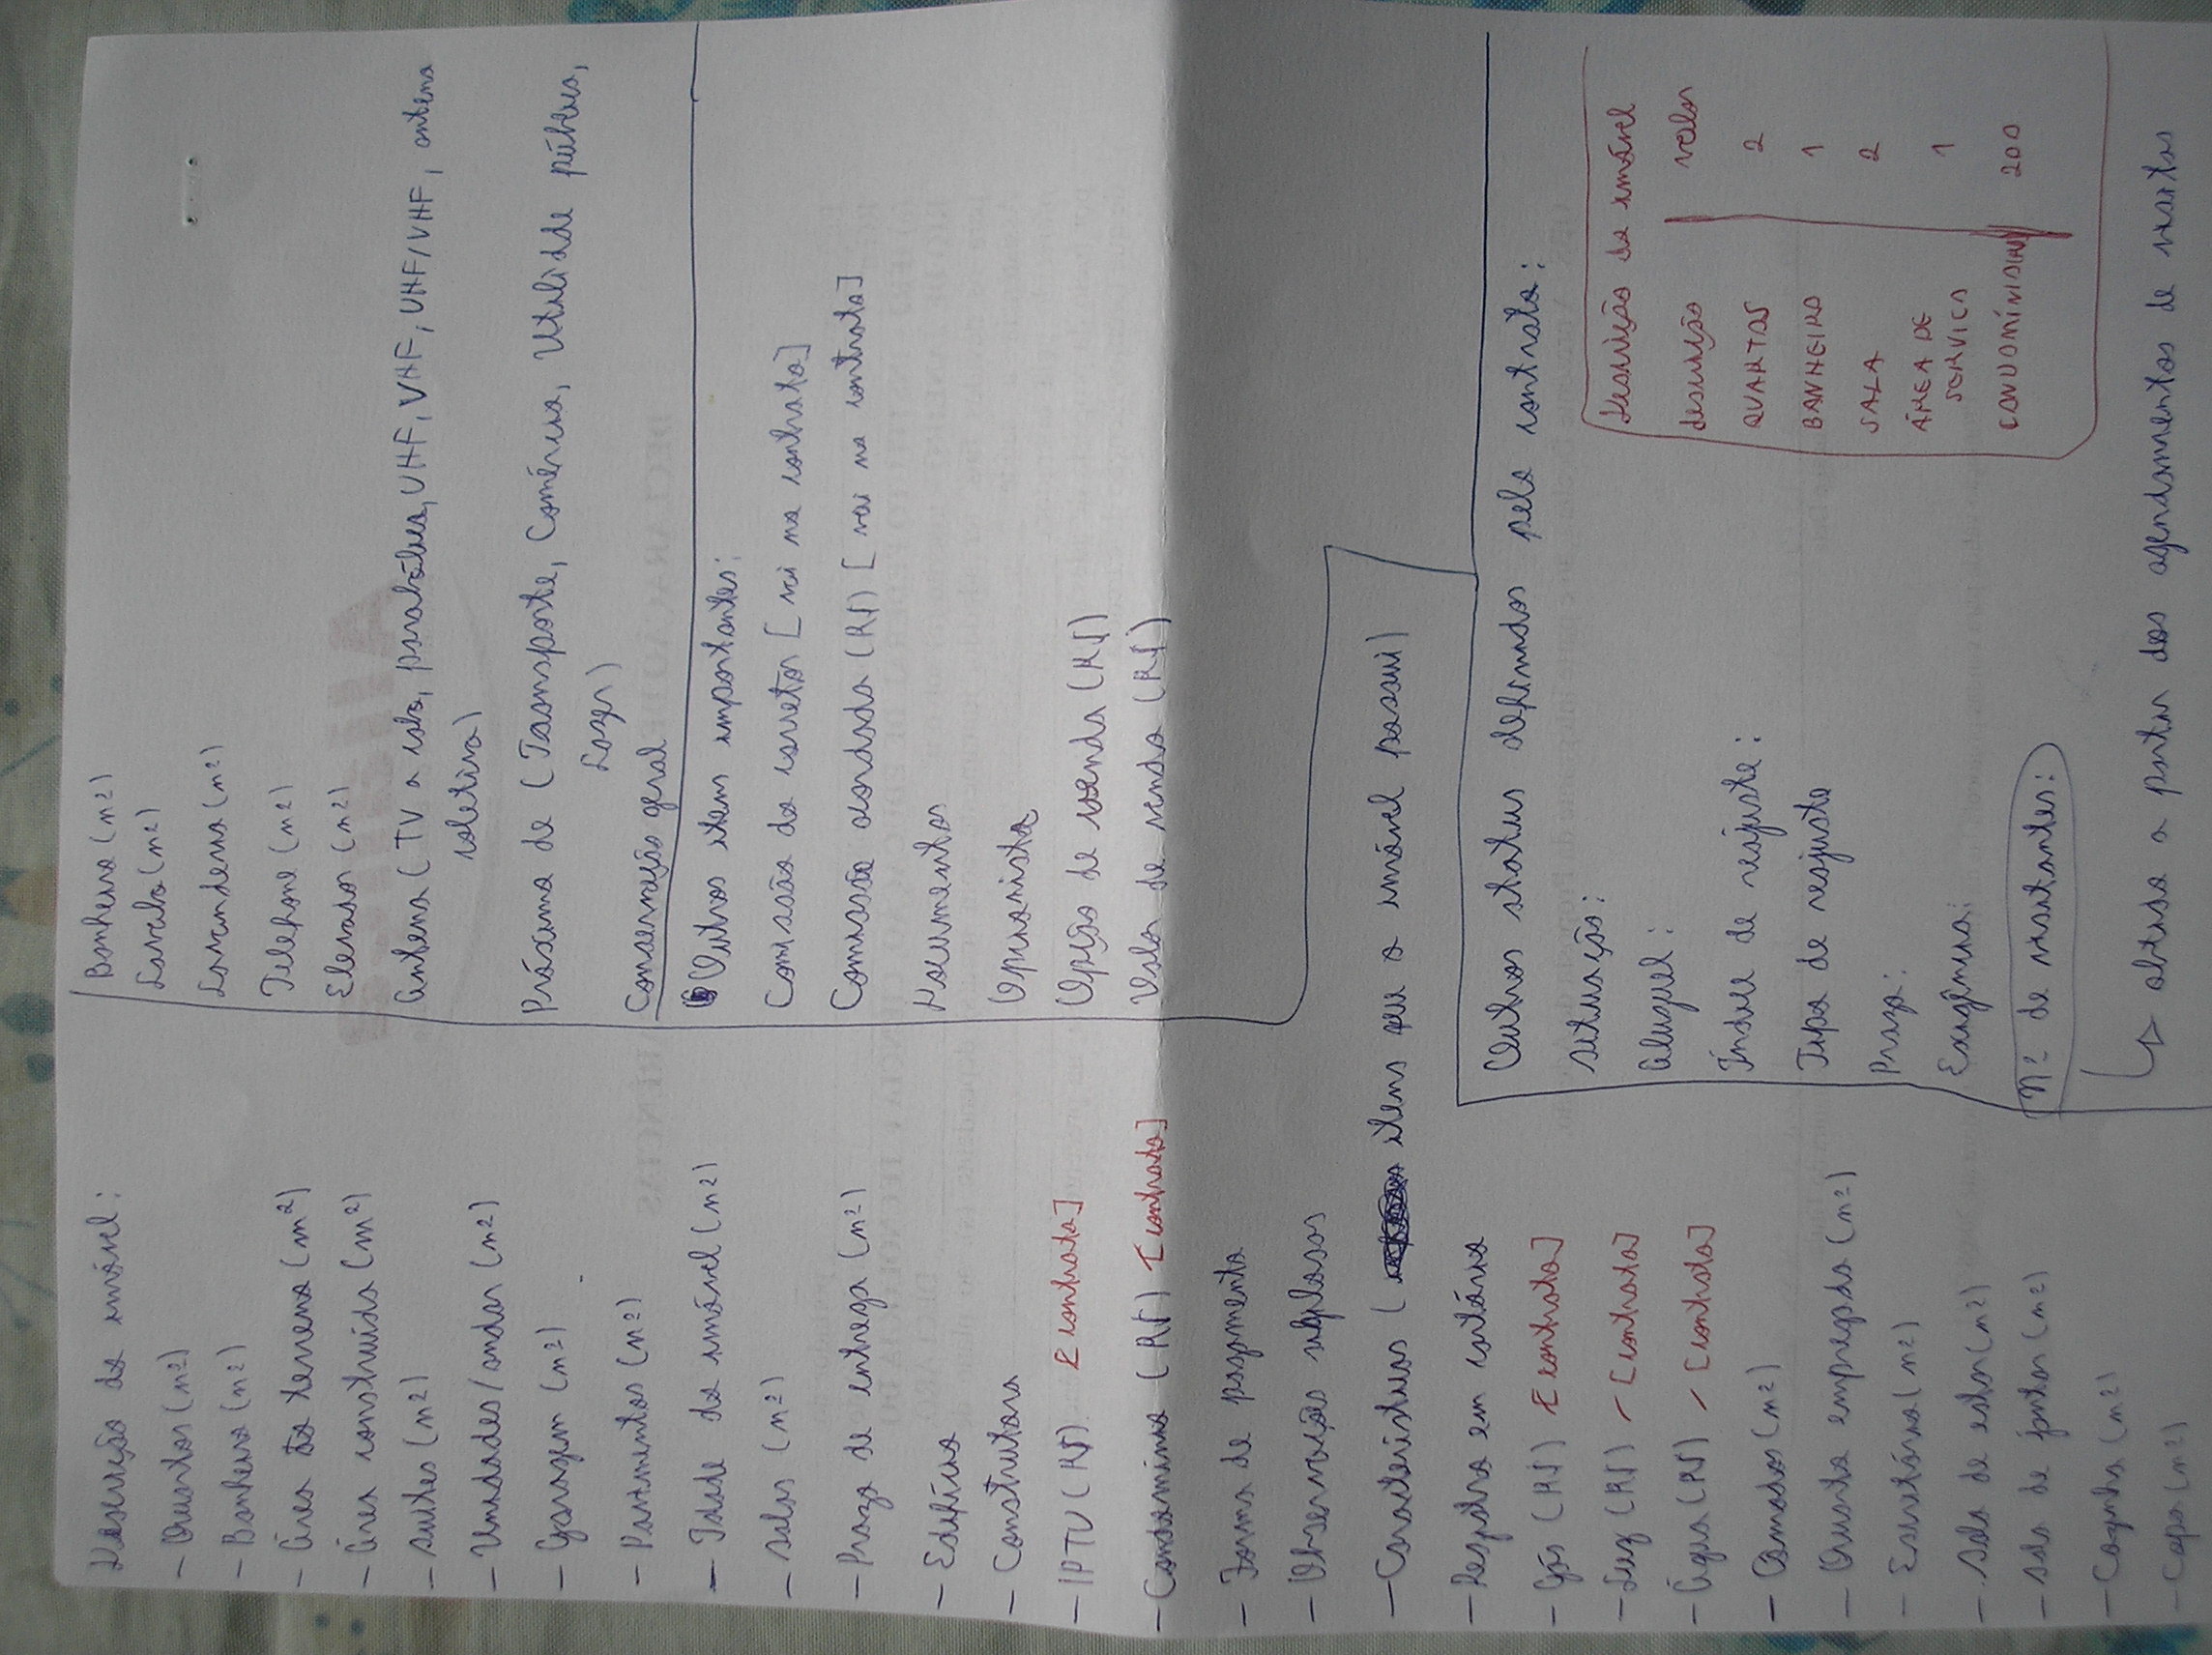 Descrição do imóvel:
- Quartos (nº)
- Banheiro (nº)
- Área do terreno (m²)
- Área construída (m²)
- suítes (nº)
- Unidades/andar (nº)
- Garagem (nº)
- Pavimentos (nº)
- Idade do imóvel (nº)
- salas (nº)
- Prazo de entrega (nº)
- Edifício
- Construtora
- IPTU (R$) [contrato]
- Condomínio (R$) [contrato]
- Forma de pagamento
- Observações
- Características ( itens que o imóvel possui)
- Registro em cartório
- Gás (R$) [contrato]
- Luz (R$) - [contrato]
- Água (R$) - [contrato]
- Quarto empregada (nº)
- Escritório (nº)
- sala de estar (nº)
- sala de jantar (nº)
- Cozinha (nº)
- Copa (nº)
Banheiro (nº)
Lavabo (nº)
Lavanderia (nº)
Telefone (nº)
Elevador (nº)
Antena (TV a cabo, parabólica, UHF, VHF, UHF/VHF, antena
coletiva)
Próximo de (Transporte, Comércio, Utilidade pública,
Lazer)
Conservação geral
Outros itens importantes:
Comissão do corretor [vai no contrato]
Comissão acordada (R$) [vai no contrato]
Documentos
Opcionista
Opção de venda (R$)
Valor de venda (R$)
Outros status definidos pelo contrato:
situação:
Aluguel:
Índice de reajuste:
Tipo de reajuste
Prazo:
Exigência:
Nº de visitantes:
↳ obtido a partir dos agendamentos de visitas
Descrição do imóvel
descrição valor
QUARTOS 2
BANHEIRO 1
SALA 2
ÁREA DE
SERVIÇO 1
CONDOMÍNIO(R$) 200